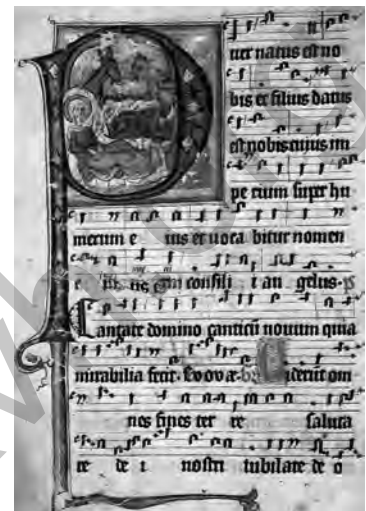 uer natus est no
bis et filius datus
est nobis cuius im
pe rium super hu
merum e ius et uoca bitur nomen
e ius consili i an gelus. p
Cantate domino canticū nouum quia
mirabilia fecit. Euouae. iderūt om
nes fines ter re saluta
re de i nostri iubilate de o